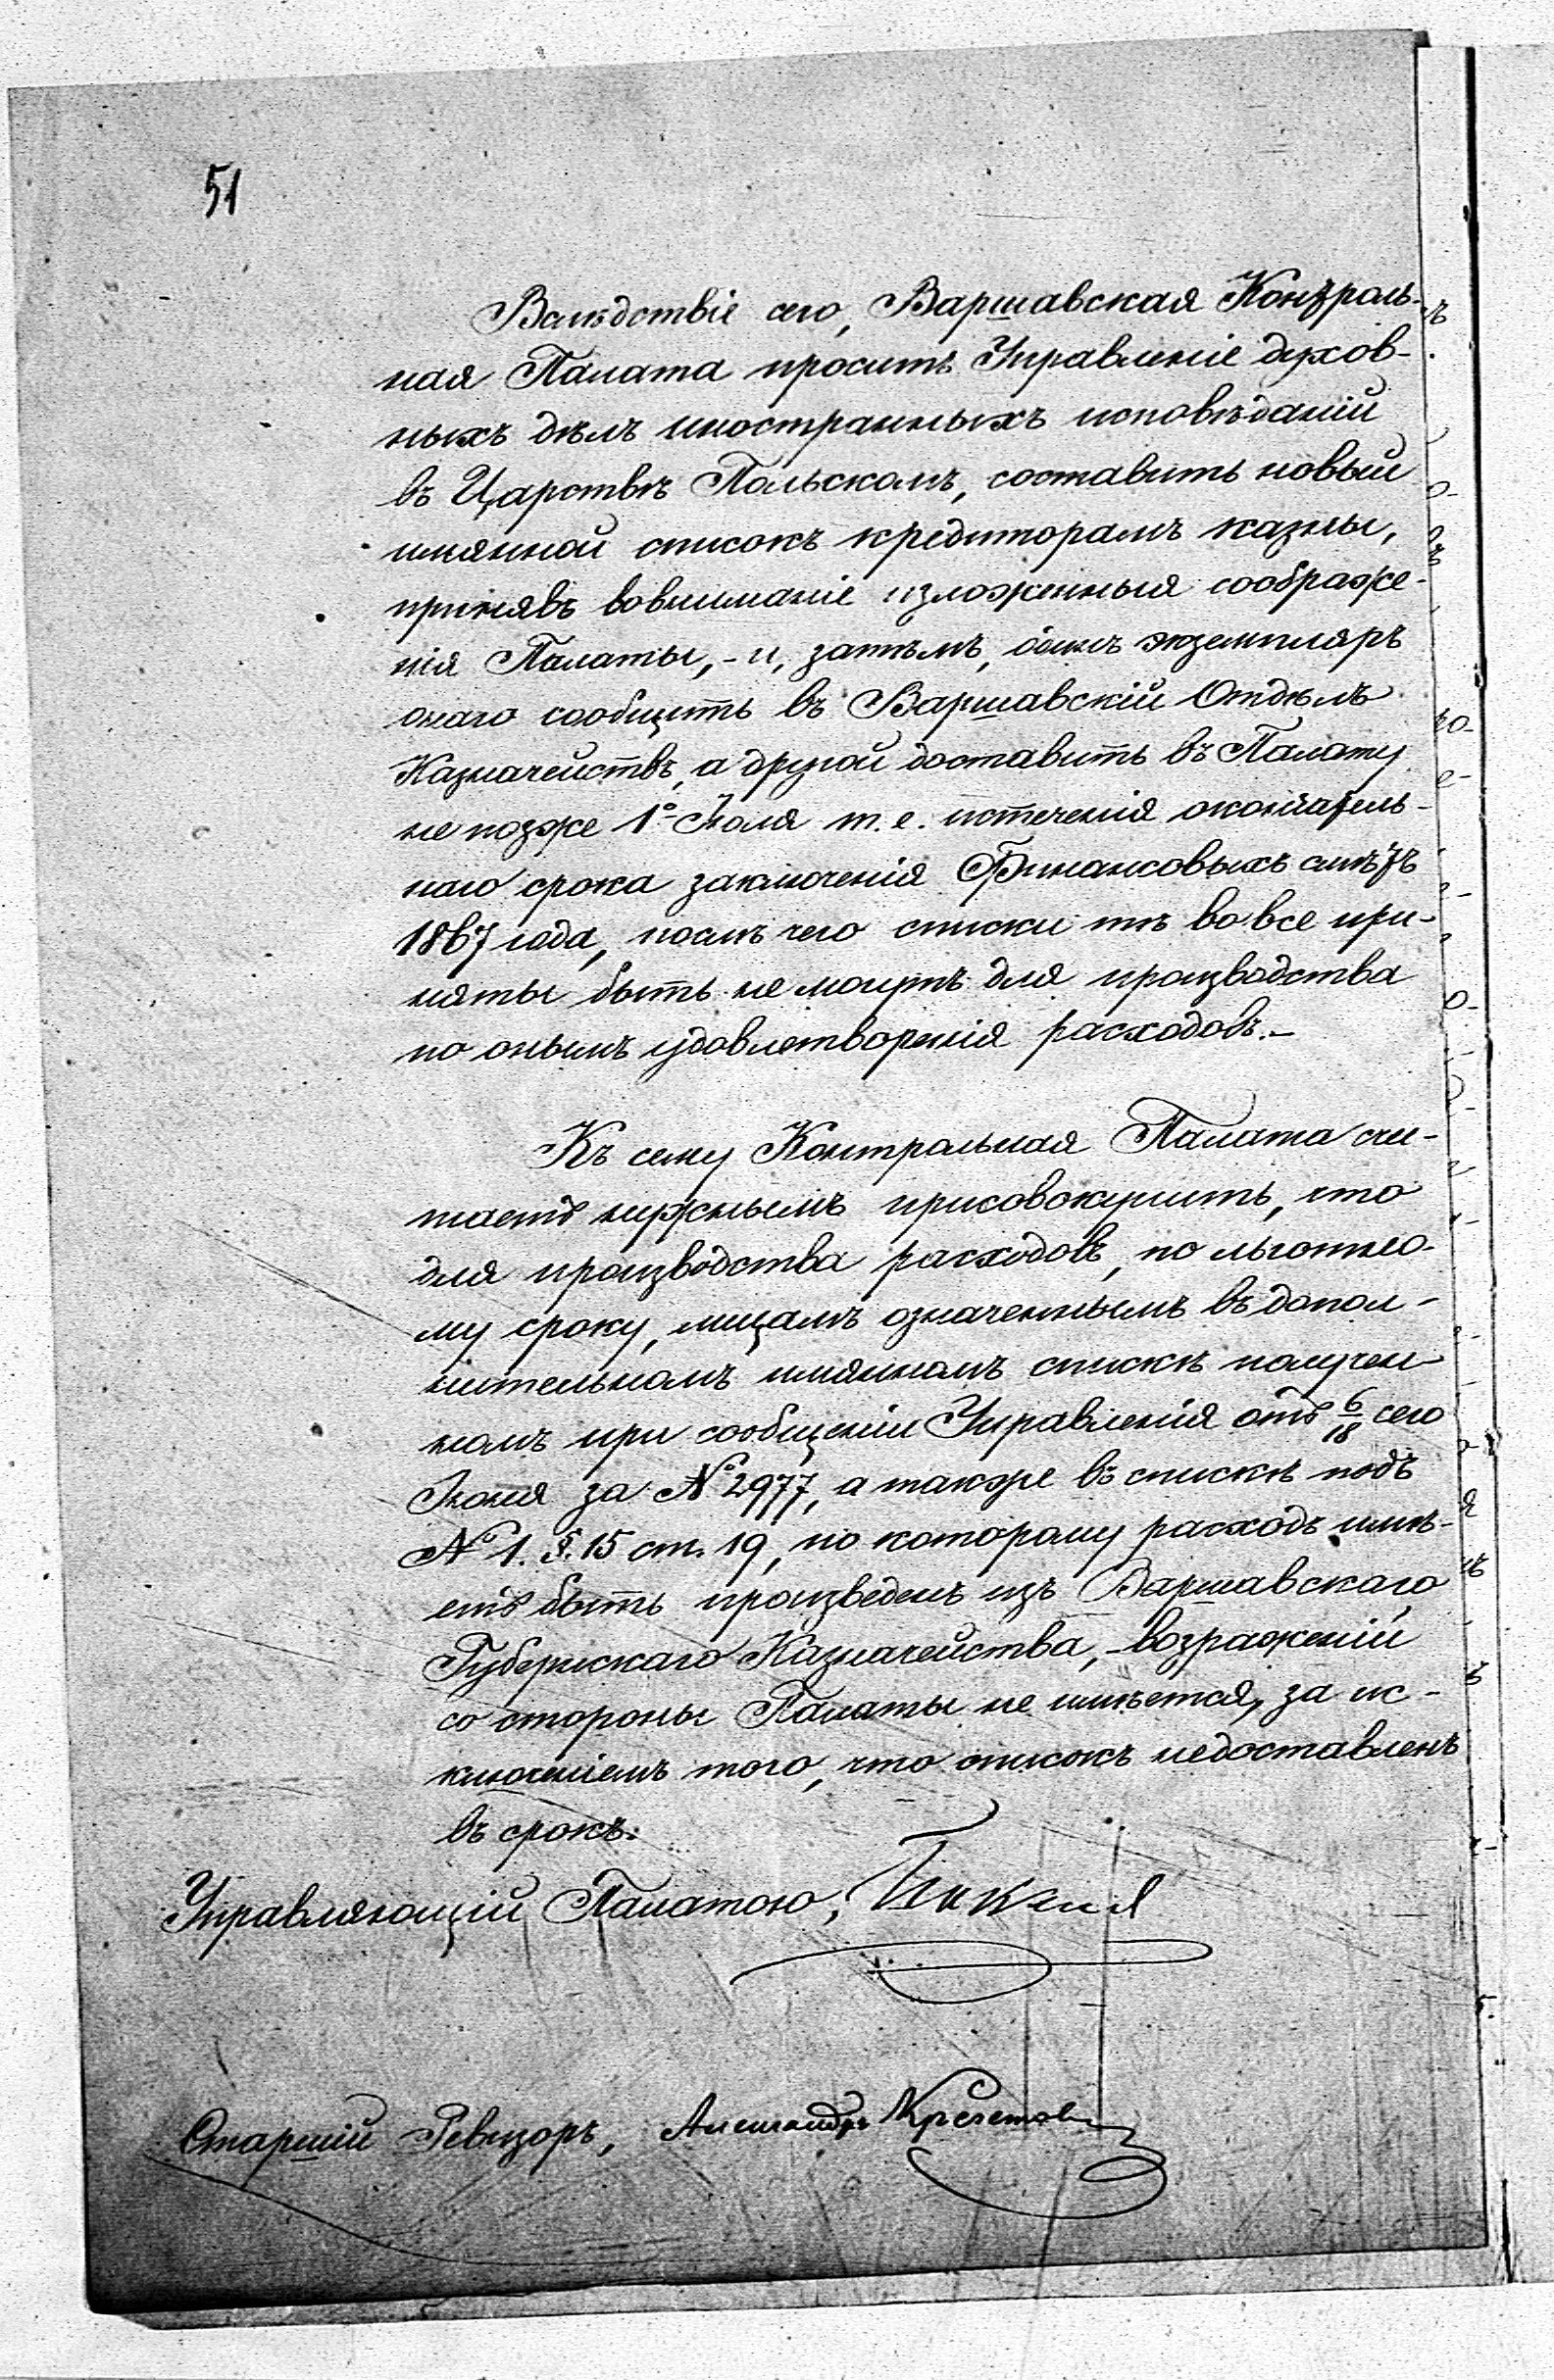 51
Вслѣдствіе сего, Варшавская Контроль-
ная Палата проситъ Управленіе духов-
ныхъ дѣлъ иностранныхъ исповѣданій
въ Царствѣ Польскомъ, составить новый
имянной списокъ кредиторамъ казны,
принявъ вовниманіе изложенныя соображе-
нія Палаты, - и, затѣмъ, одинъ экземпляръ
онаго сообщить въ Варшавскій Отдѣлъ
Казначействъ, а другой доставить въ Палату
не позже 1º Іюля т. е. истеченія окончатель-
наго срока заключенія Финансовыхъ смѣтъ
1867 года, послѣ чего списки тѣ вовсе при-
няты быть не могутъ для производства
по онымъ удовлетворенія расходовъ.-
Къ сему Контрольная Палата счи-
таетъ нужнымъ присовокупить, что
для производства расходовъ, по льготно-
му сроку, лицамъ означеннымъ въ допол-
нительномъ имянномъ спискѣ получен-
номъ при сообщеніи Управленія отъ 6/18 сего
Іюня за № 2977, а также въ спискѣ подъ
№ 1. §. 15 ст. 19, по которому расходъ имѣ-
етъ быть произведенъ изъ Варшавскаго
Губернскаго Казначейства, - возраженій
со стороны Палаты не имѣется, за ис-
ключеніемъ того, что списокъ недоставленъ
въ срокъ.
Управляющій Палатою,
Старшій Ревизоръ, Александръ